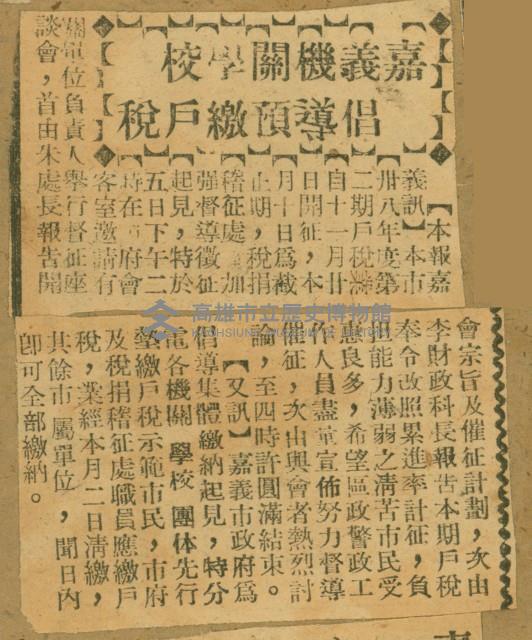 嘉義機關學校
倡導預繳戶稅
【本報嘉
義訊】本市
卅八年度第
二期戶稅
自十一月廿
日開征，本
月十日為截
止期，稅捐
稽征處為加
強督導徵征
起見，特於
五日下午二
時在市府會
客室邀請有
關單位負責人舉行督征座
談會，首由朱處長報告開
會宗旨及催征計劃，次由
李財政科長報告本期戶稅
奉令改照累進率計征，負
担能力薄弱之清苦市民受
惠良多，希望區政警政工
作人員盡量宣佈努力督導
催征，次由與會者熱烈討
論，至四時許圓滿結束。
【又訊】嘉義市政府為
倡導集體繳納起見，特分
電各機關 學校 團体先行
墊繳戶稅示範市民，市府
及稅捐稽征處職員應繳戶
稅，業經本月二日清繳，
其餘市 屬單位，聞日內
即可全部繳納。
高雄市立歷史博物館
KAOHSIUNG MUSEUM OF HISTORY